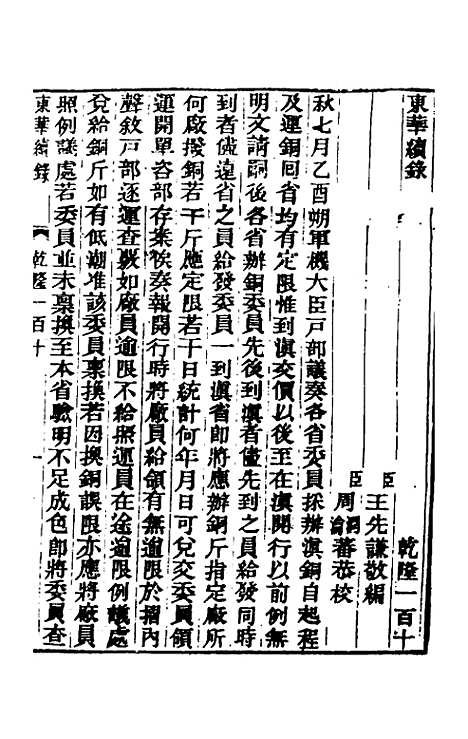 東華續錄
乾隆一百十
臣王先謙敬編
臣周潤蕃周瀹蕃恭校
秋七月乙酉朔軍機大臣戸部議奏各省委員採辦滇銅自起程
及運銅囘省均有定限惟到滇交價以後至在滇開行以前例無
明文請嗣後各省辦銅委員先後到滇者儘先到之員給發同時
到者儘遠省之員給發委員一到滇省即將應辦銅斤指定廠所
何廠撥銅若干斤應定限若干日統計何年月日可兌交委員領
運開單咨部存案俟奏報開行時將廠員給領有無逾限於摺內
聲敘戸部逐運查覈如廠員逾限不給照運員在途逾限例議處
兌給銅斤如有低潮准該委員稟換若因換銅誤限亦應將廠員
照例議處若委員並未稟換至本省驗明不足成色即將委員查
東華續錄
乾隆一百十
一